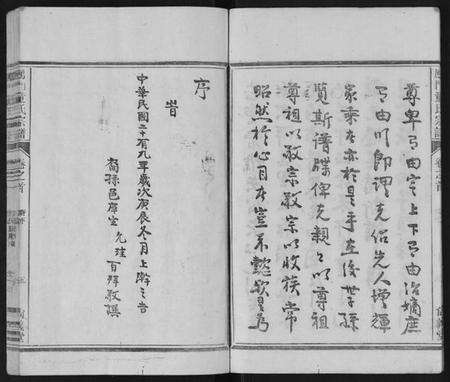 尊卑有由定上下有由治嫡庶
有由明即理克紹先人增輝
家乘者亦於是乎在後世子孫
覽斯譜牒俾克親親以尊祖
尊祖以敬宗敬宗以收族常
昭然於心目者豈不懿歟是為
序
旹
中華民國二十有九年歲次庚辰冬月上澣之吉
裔孫邑庠生
允
百拜敬撰